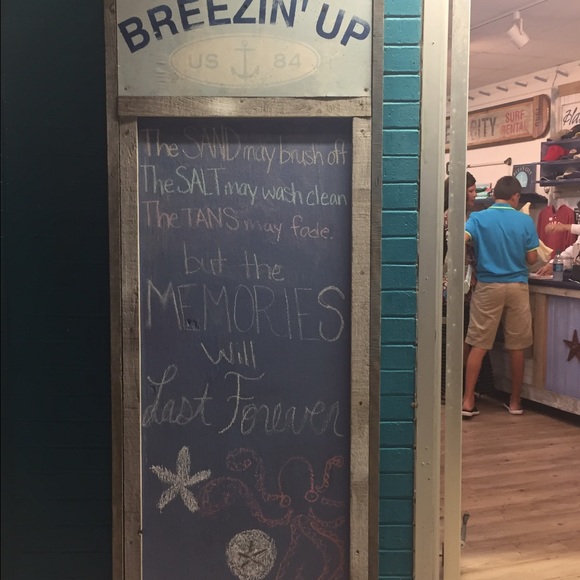 BREEZIN' UP
US 84
The SAND may brush off
The SALT may wash clean
The TANS may fade.
but the
MEMORIES
Will
Last Forever
CITY SURF
RENTAL